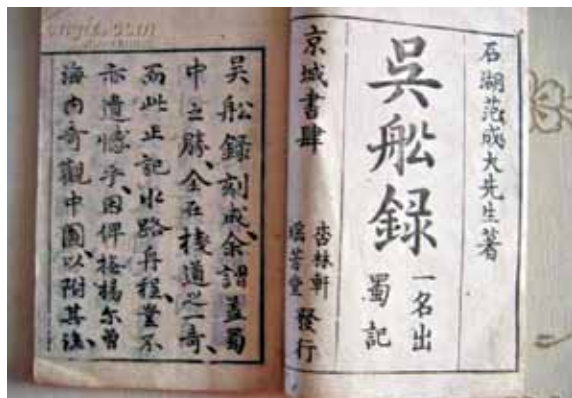 石湖范成大先生著
吳舩録
一名出
蜀記
京城書肆
杏林軒
瑶芳堂
發行
吴舩錄刻成、余謂蓋蜀
中之勝、全在棧道之一奇、
而此止記水路舟程、豈不
亦遺憾乎、因俾楊尔曽
海内奇觀中圖、以附其後、